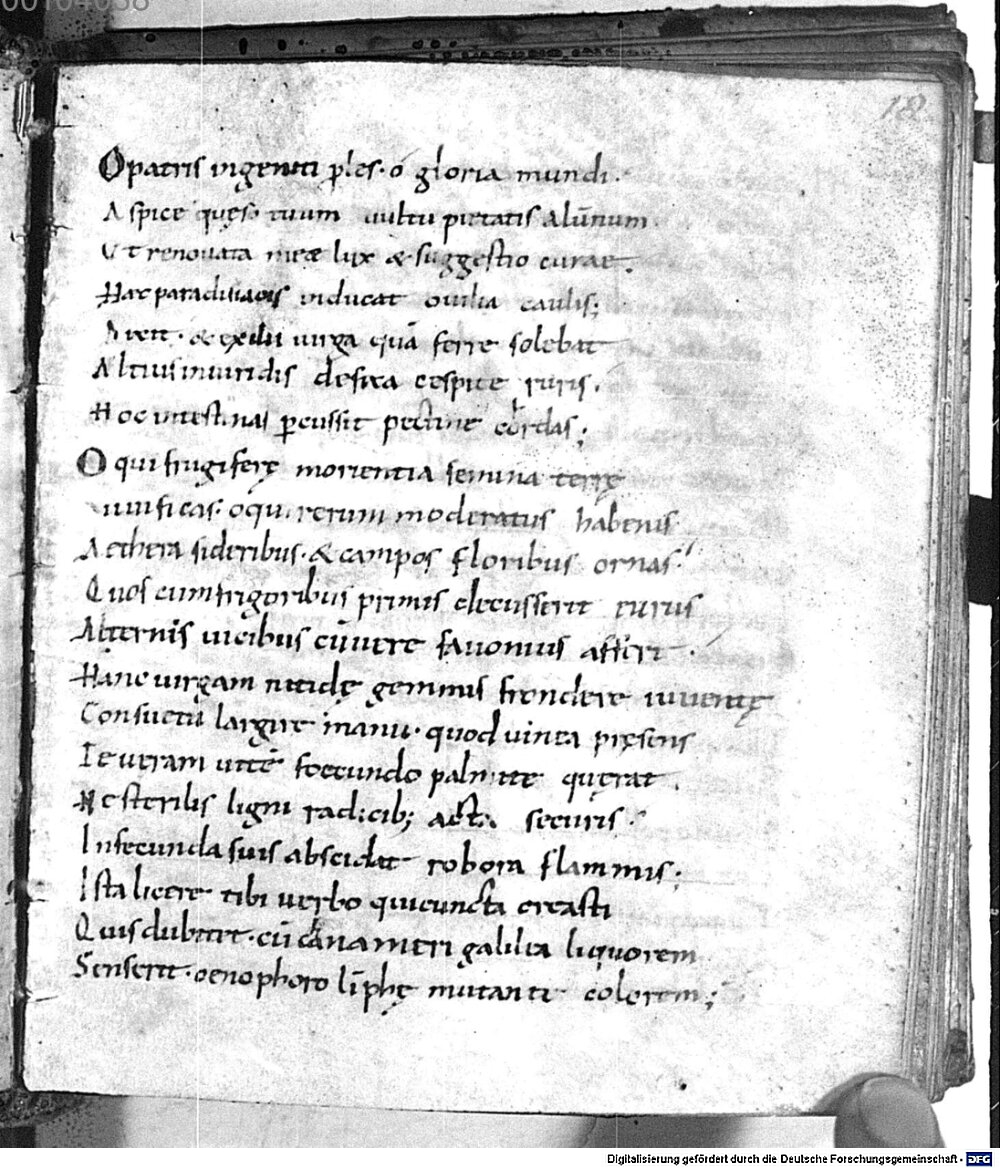 00104038
18
O patris ingeniti ples · o gloria mundi ·
Aspice quęso tuum uultu pietatis alūnum ·
Ut renouata meae lux & suggestio curae ·
Hac paradisiacis inducat ouilia caulis ;
& exilii uirga quā ferre solebat
Altius in uiridis defixa cespite ruris ·
Hoc intestinas ꝑcussit pectine cordas ;
O qui frugiferę morientia semina terrę
uiuificas · o qui rerum moderatus habenis
Aethera sideribus · & campos floribus ornas ·
Quos cum frigoribus primis decusserit eurus
Alternis uicibus cū uere fauonius affert ·
Hanc uirgam nitidę gemmis frondere iuuentę
Consuetū largire manu · quod uinea pręsens
Te ueram uitē foecundo palmite quęrat ·
Ne sterilis ligni radicib; acta securis ·
Infecunda suis abscidat robora flammis ;
Ista licere tibi uerbo qui cuncta creasti
Quis dubitet · cū cana meri galilea liquorem
Senserit · oenophoro limphę mutante colorem ;
Digitalisierung gefördert durch die Deutsche Forschungsgemeinschaft - DFG